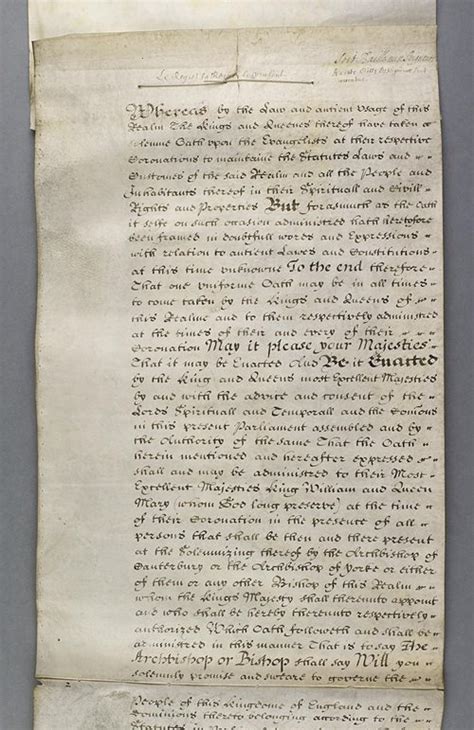 Le Roy et la Royne le veulent
Soit Baillé aux Seigneurs
Whereas by the Law and antient Usage of this
Realm The Kings and Queenes thereof have taken a
solemne Oath upon the Evangelists at their respective
Coronations to maintaine the Statutes Laws and
Customes of the said Realm and all the People and
Inhabitants thereof in their Spirituall and Civill
Rights and Properties But forasmuch as the Oath
it selfe on such occasion administred hath heretofore
been framed in doubtfull words and Expressions
with relation to antient Laws and Constitutions
at this time unknowne To the end therefore
That one uniforme Oath may be in all times
to come taken by the Kings and Queens of
this Realme and to them respectively administred
at the times of their and every of their
Coronation May it please your Majesties
That it may be Enacted And Be it Enacted
by the King and Queens most Excellent Majesties
by and with the advice and consent of the
Lords Spirituall and Temporall and the Comons
in this present Parliament assembled and by
the Authority of the same That the Oath
herein mentioned and hereafter expressed
shall and may be administred to their Most
Excellent Majesties King William and Queen
Mary (whom God long preserve) at the time
of their Coronation in the presence of all
persons that shall be then and there present
at the Solemnizing thereof by the Archbishop of
Canterbury or the Archbishop of Yorke or either
of them or any other Bishop of this Realm
whom the Kings Majesty shall thereunto appoint
and who shall be hereby thereunto respectively
authorized Which Oath followeth and shall be
administred in this manner That is to say The
Archbishop or Bishop shall say Will you
solemnly promise and sweare to governe the
2
People of this Kingdome of England and the
Dominions thereto belonging according to the
Statutes in